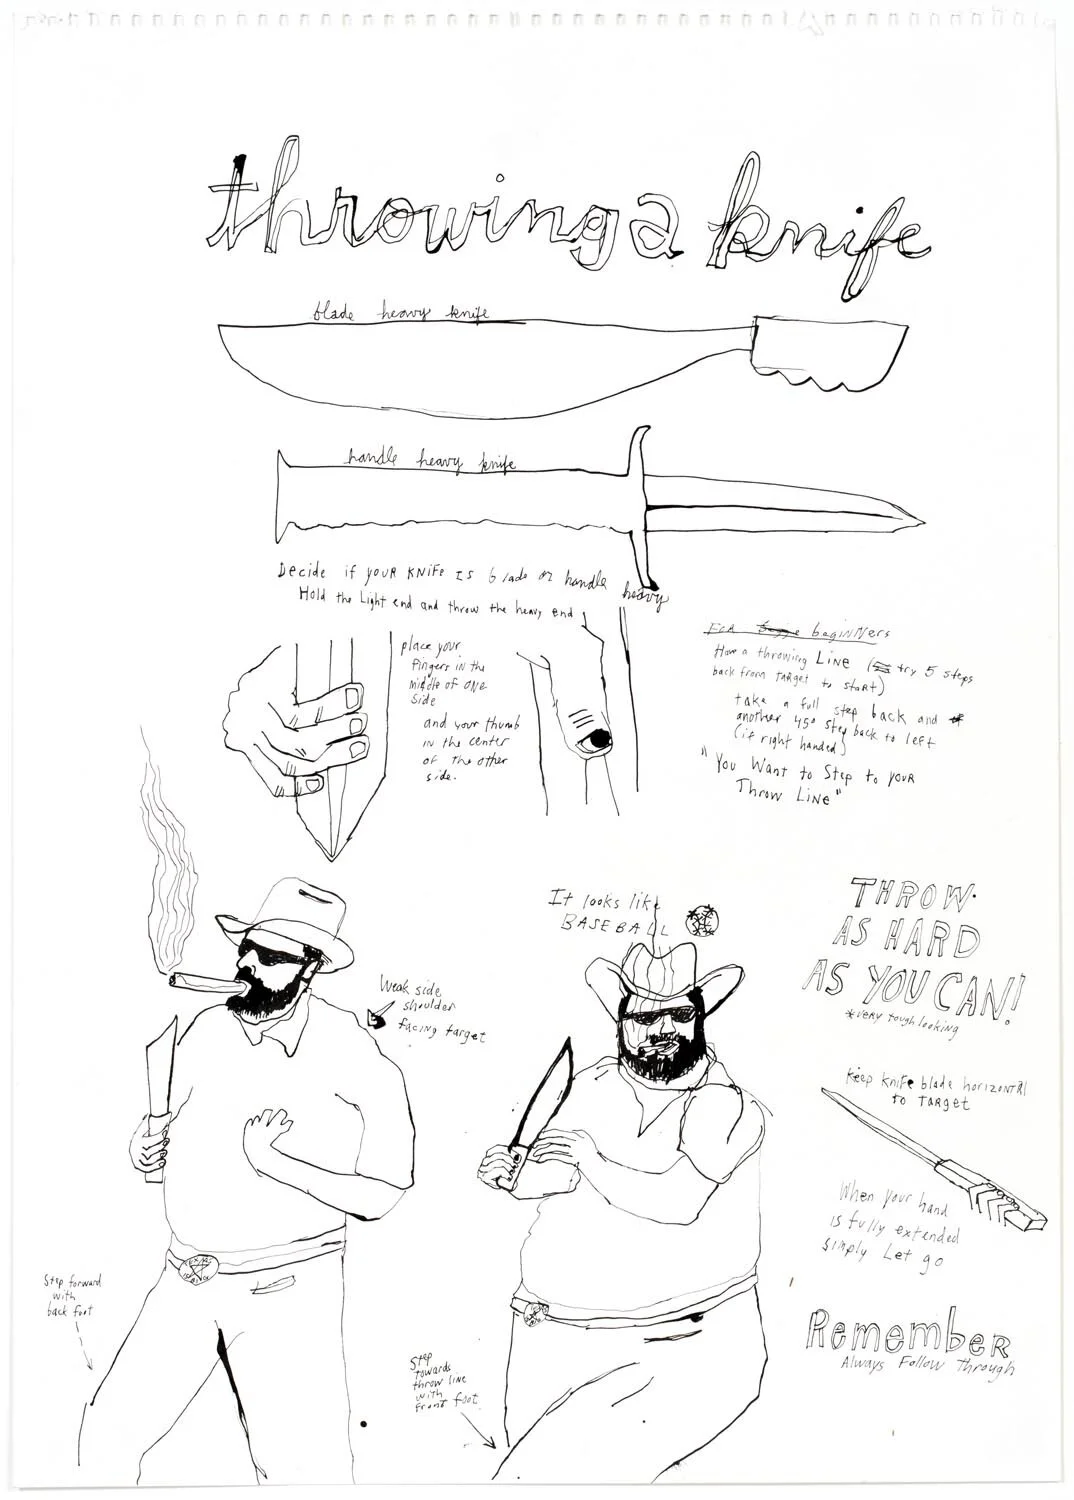 throwing a knife
blade heavy knife
handle heavy knife
Decide if your KNIFE IS blade or handle heavy
Hold the Light end and throw the heavy end
place your
fingers in the
middle of one
side
and your thumb
in the center
of the other
side.
For beginners
Have a throwing LINE ( try 5 steps
back from target to start)
take a full step back and
another 45° step back to left
(if right handed)
"You Want to Step to your
Throw Line"
Weak side
shoulder
facing target
It looks like
BASEBALL
THROW
AS HARD
AS YOU CAN!
*very tough looking
Keep knife blade horizontal
to target
When your hand
is fully extended
simply Let go
Step forward
with
back foot
Step
towards
throw line
with
front foot
Remember
Always Follow Through